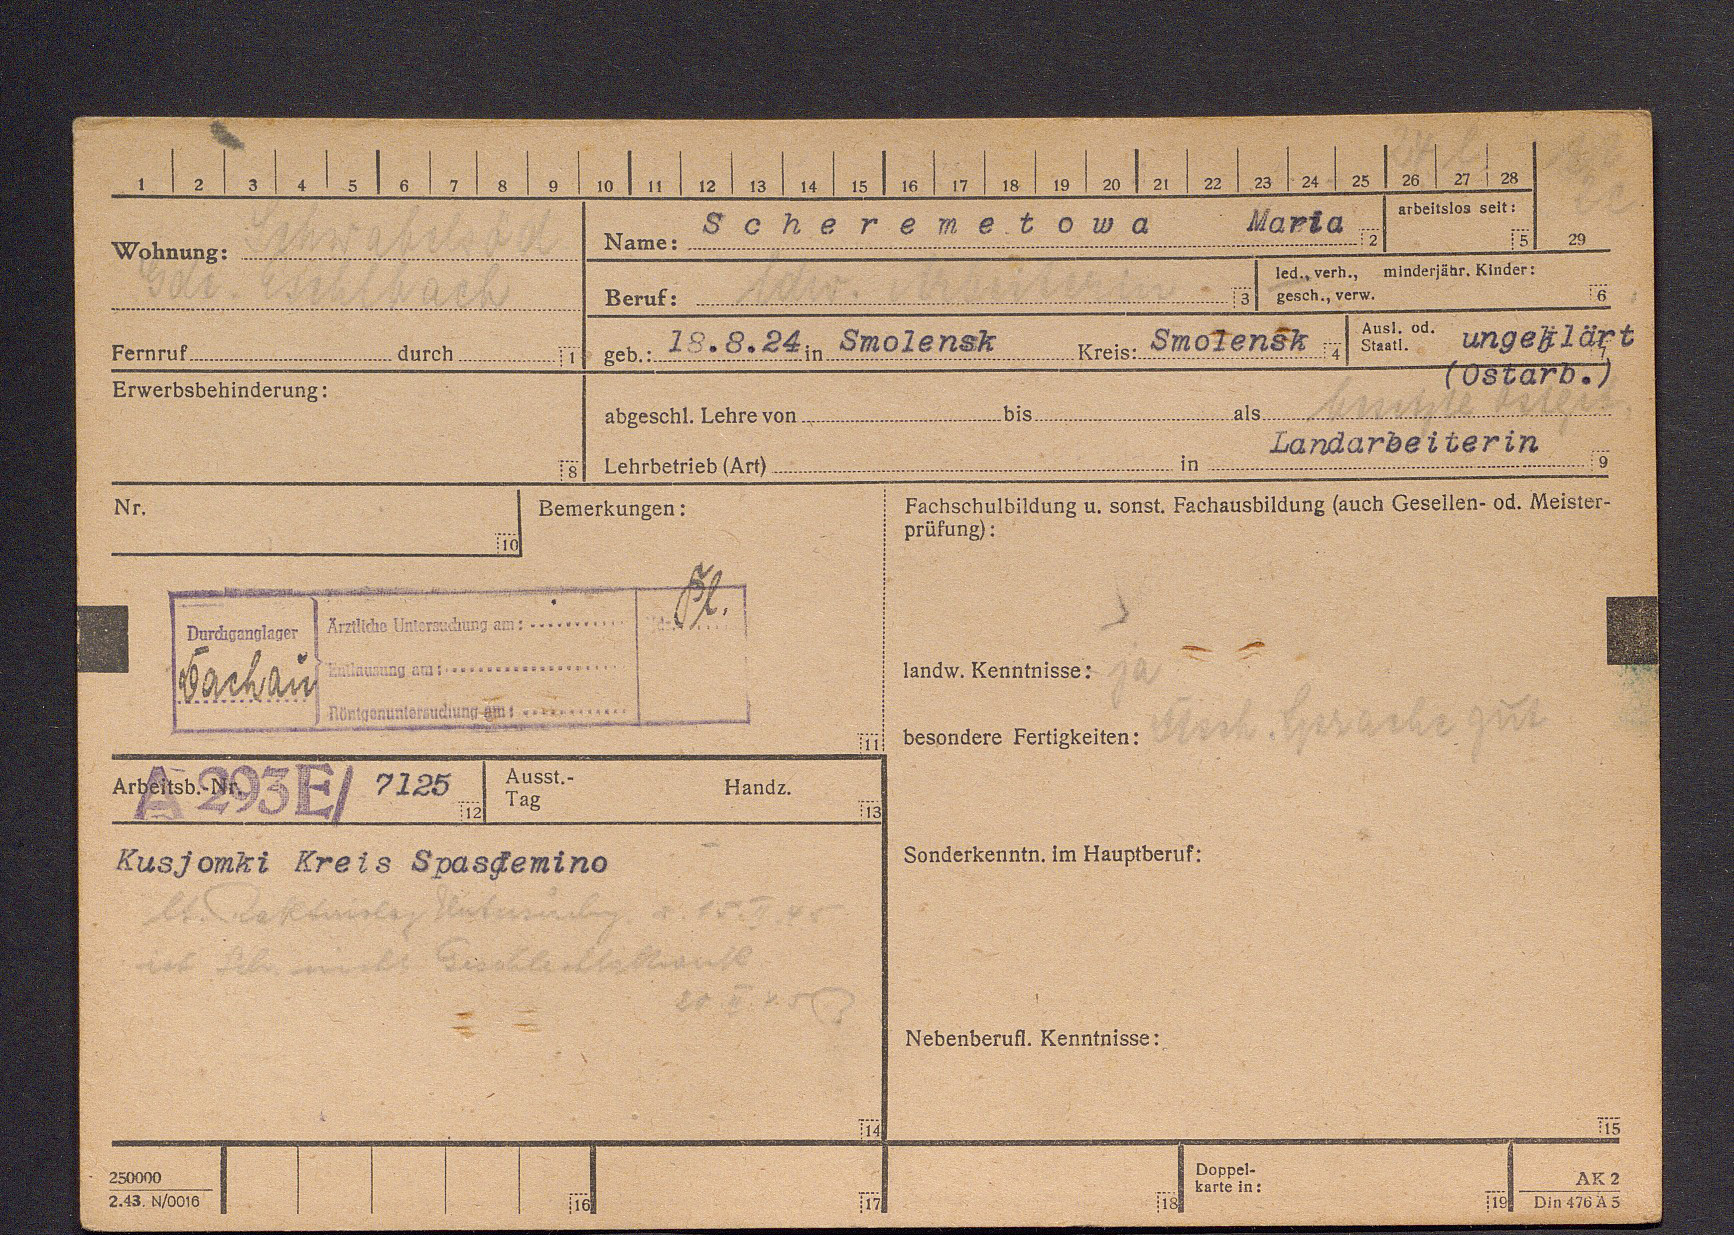 1 2 3 4 5 6 7 8 9 10 11 12 13 14 15 16 17 18 19 20 21 22 23 24 25 26 27 28
29
Wohnung: Schwabelsöd
Gde. Eschlbach
Fernruf durch 1
Name: Scheremetowa Maria 2
arbeitslos seit: 5
Beruf: ldw. Arbeiterin 3
led., verh., minderjähr. Kinder:
gesch., verw. 6
geb.: 18.8.24 in Smolensk Kreis: Smolensk 4
Ausl. od. Staatl. ungeklärt 7
(Ostarb.)
Erwerbsbehinderung:
8
abgeschl. Lehre von bis als
Landarbeiterin
Lehrbetrieb (Art) in 9
Nr.
10
Bemerkungen:
Durchganglager
Dachau
Ärztliche Untersuchung am:
Entlausung am:
Röntgenuntersuchung am:
11
Fachschulbildung u. sonst. Fachausbildung (auch Gesellen- od. Meister-
prüfung):
landw. Kenntnisse: ja
besondere Fertigkeiten: Dtsch. Sprache gut
Arbeitsb.-Nr. A 293E/ 7125 12
Ausst.-
Tag
Handz.
13
Kusjomki Kreis Spasdemino
15.II.45
20.II.45
14
Sonderkenntn. im Hauptberuf:
Nebenberufl. Kenntnisse:
15
250000
2.43. N/0016
16
17
18
Doppel-
karte in:
19
AK 2
Din 476 A 5